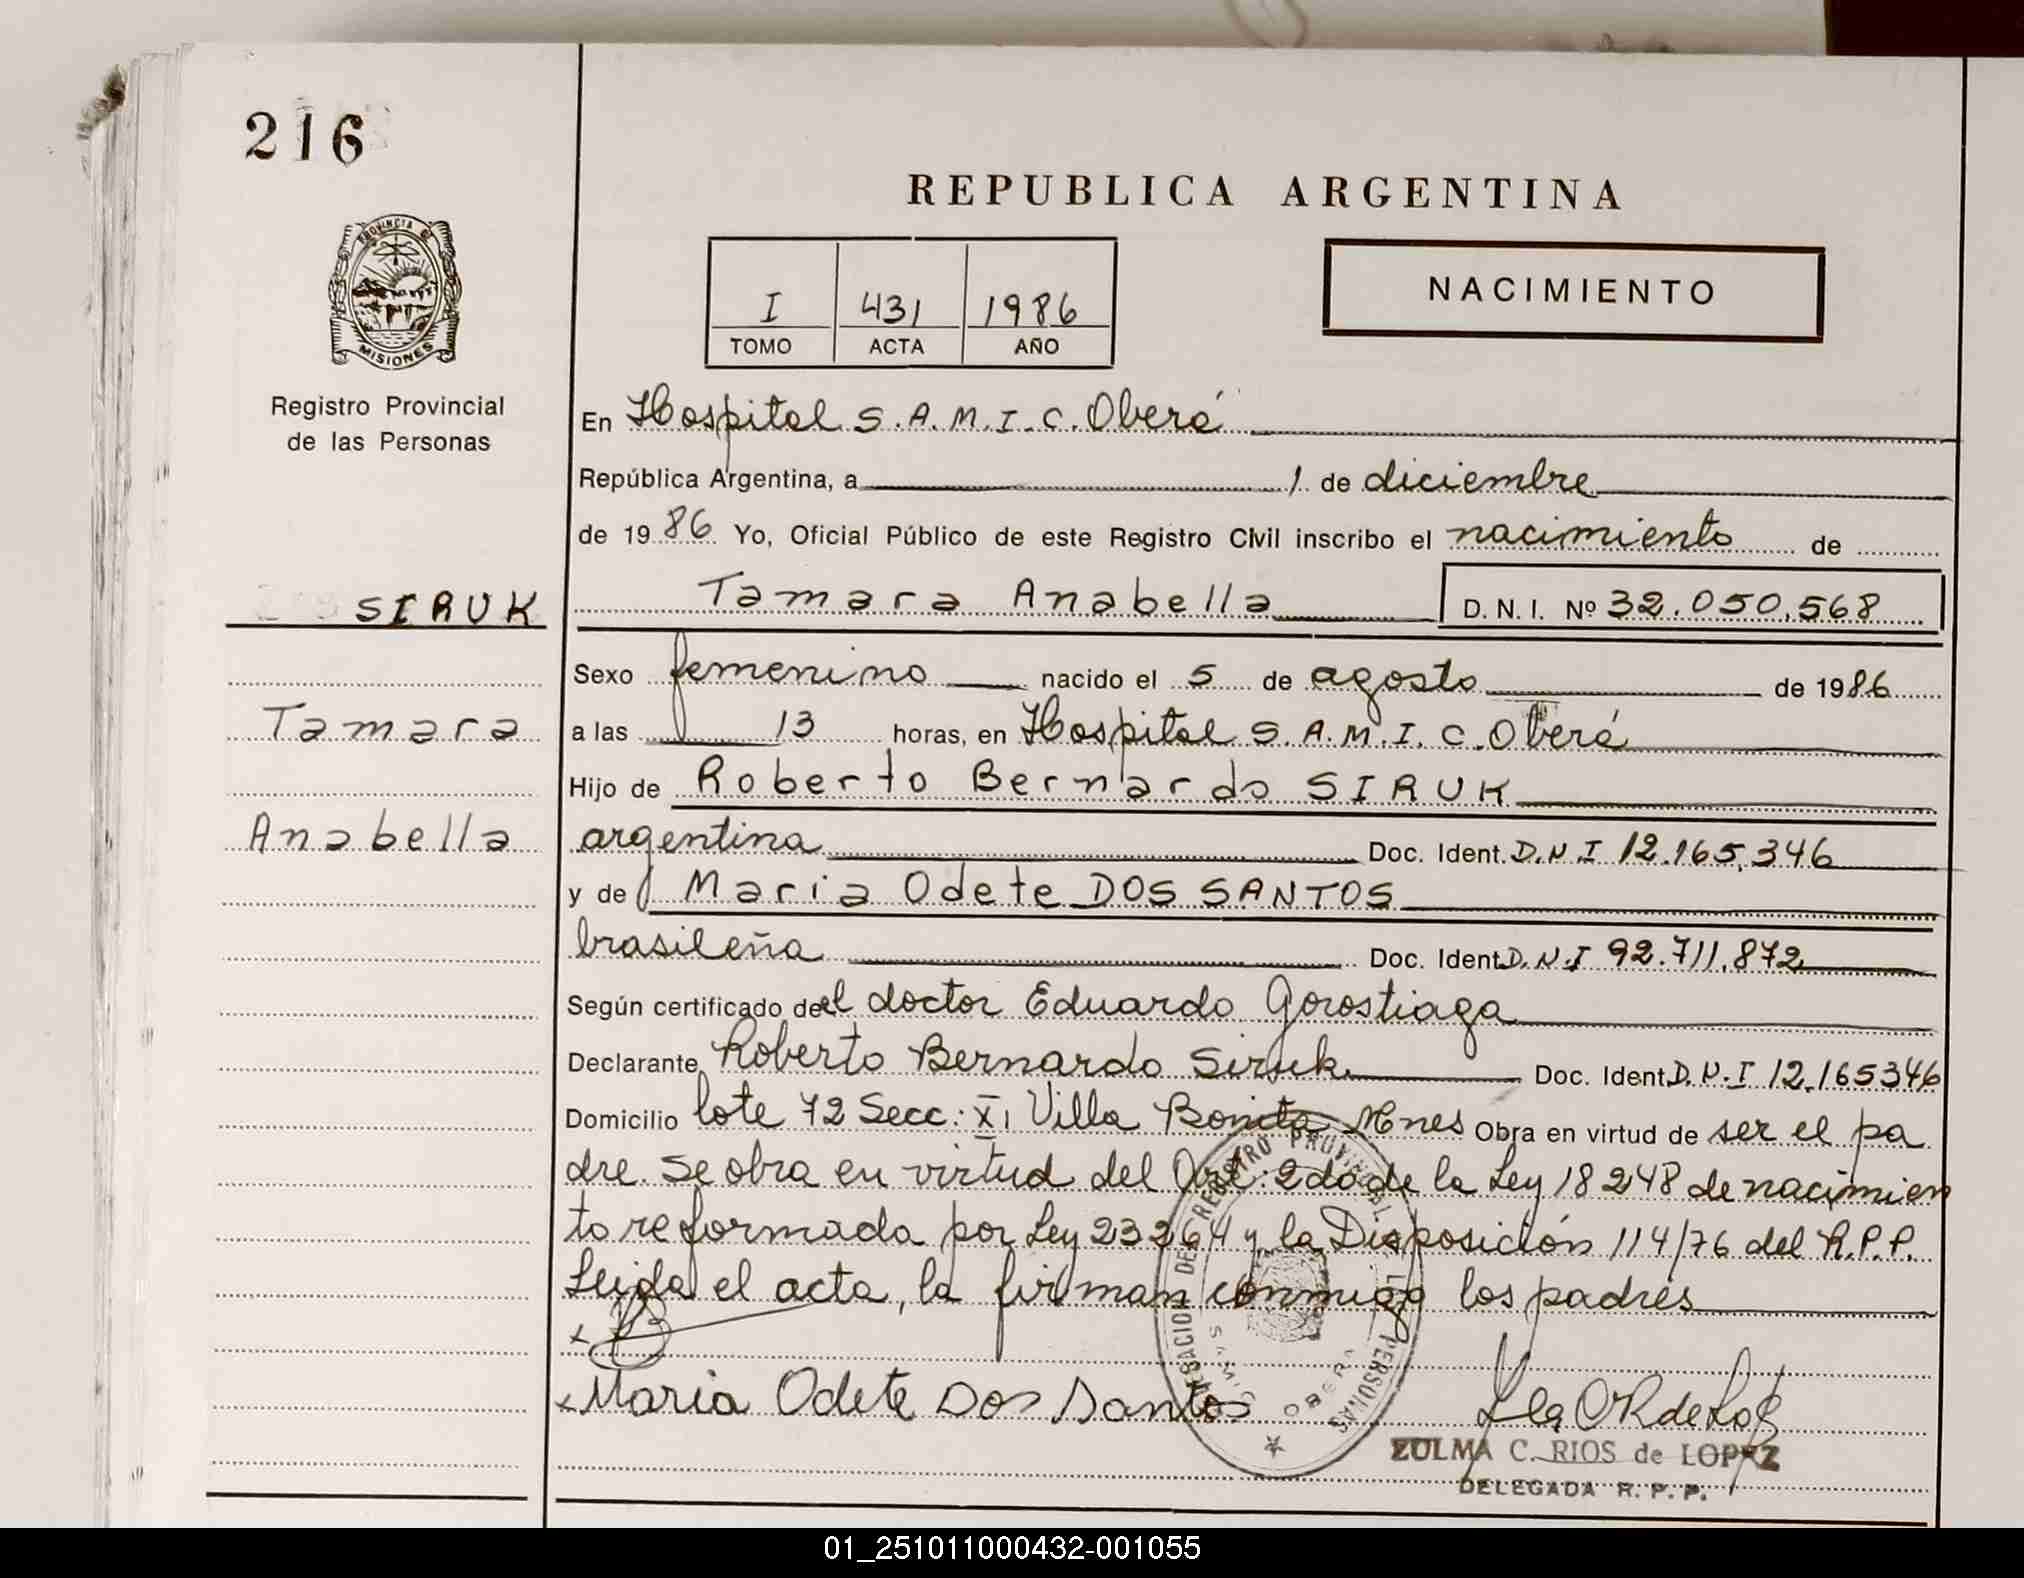 216
REPUBLICA ARGENTINA
PROVINCIA DE
MISIONES
I 431 1986
TOMO ACTA AÑO
NACIMIENTO
Registro Provincial
de las Personas
En Hospital S.A.M.I.C. Oberá
República Argentina, a 1 de diciembre
de 1986 Yo, Oficial Público de este Registro Civil inscribo el nacimiento de
SIRUK
Tamara Anabella D.N.I. Nº 32.050.568
Sexo femenino nacido el 5 de agosto de 1986
Tamara
a las 13 horas, en Hospital S.A.M.I.C. Oberá
Hijo de Roberto Bernardo SIRUK
Anabella
argentina Doc. Ident. D.N.I 12.165.346
y de Maria Odete DOS SANTOS
brasileña Doc. Ident D.N.I 92.711.872
Según certificado de el doctor Eduardo Gorostiaga
Declarante Roberto Bernardo Siruk Doc. Ident. D.N.I 12.165346
Domicilio lote 72 Secc: XI Villa Bonita Mnes Obra en virtud de ser el pa
dre. Se obra en virtud del Art: 2do de la Ley 18248 de nacimien
to reformada por Ley 23264 y la Disposición 114/76 del R.P.P.
Leida el acta, la firman conmigo los padres
x
x Maria Odete Dos Santos
REGISTRO PROVINCIAL
PERSONAS
OBERA
ZULMA C. RIOS de LOPEZ
DELEGADA R.P.P.
01_251011000432-001055